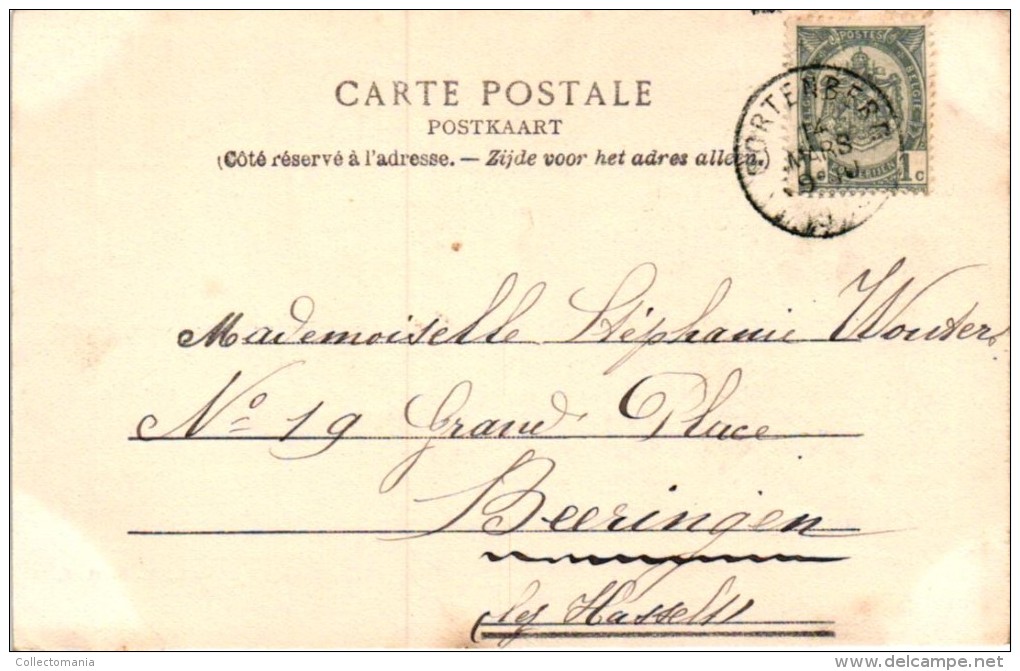 CARTE POSTALE
POSTKAART
(Côté réservé à l'adresse. — Zijde voor het adres alleen.)
POSTES
BELGIË
1 c
CORTENBERG
MARS
Mademoiselle Stéphanie Wouters
No 19 Grand Place
Beeringen
by Hasselt
Collectomania
delcampe.net